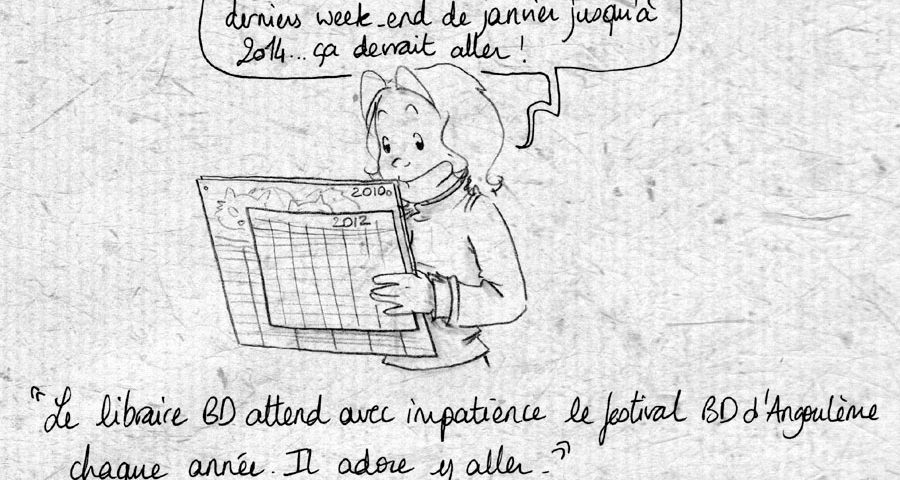 derniers week-end de janvier jusqu'à
2014... ça devrait aller !
2010
2012
"Le libraire BD attend avec impatience le festival BD d'Angoulème
chaque année. Il adore y aller."